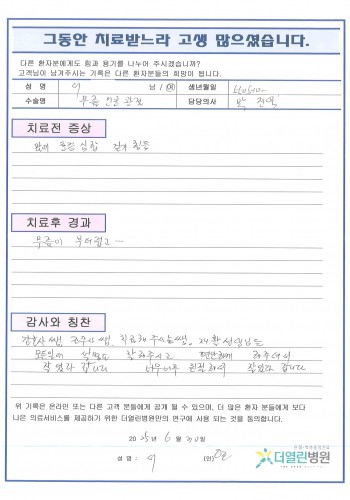 그동안 치료받느라 고생 많으셨습니다.
다른 환자분에게도 힘과 용기를 나누어 주시겠습니까?
고객님이 남겨주시는 기록은 다른 환자분들의 희망이 됩니다.
성 명 이 남 / 여 생년월일
수술명 무릎 인공관절 담당의사 박
치료전 증상
통증 심함 걷기 힘듬
치료후 경과
무릎이 부드럽고~
감사와 칭찬
간호사쌤, 치료해 주시는쌤, 재활선생님들
설명도 잘해주시고 편안하게 해주셔서
잘 있다 갑니다 너무너무 친절하여 잘있다 갑니다
위 기록은 온라인 또는 다른 고객 분들에게 공개 될 수 있으며, 더 많은 환자 분들에게 보다
나은 의료서비스를 제공하기 위한 더열린병원만의 연구에 사용 되는 것을 동의합니다.
2025년 6월 30일
성 명 : 이 (인)
더열린병원